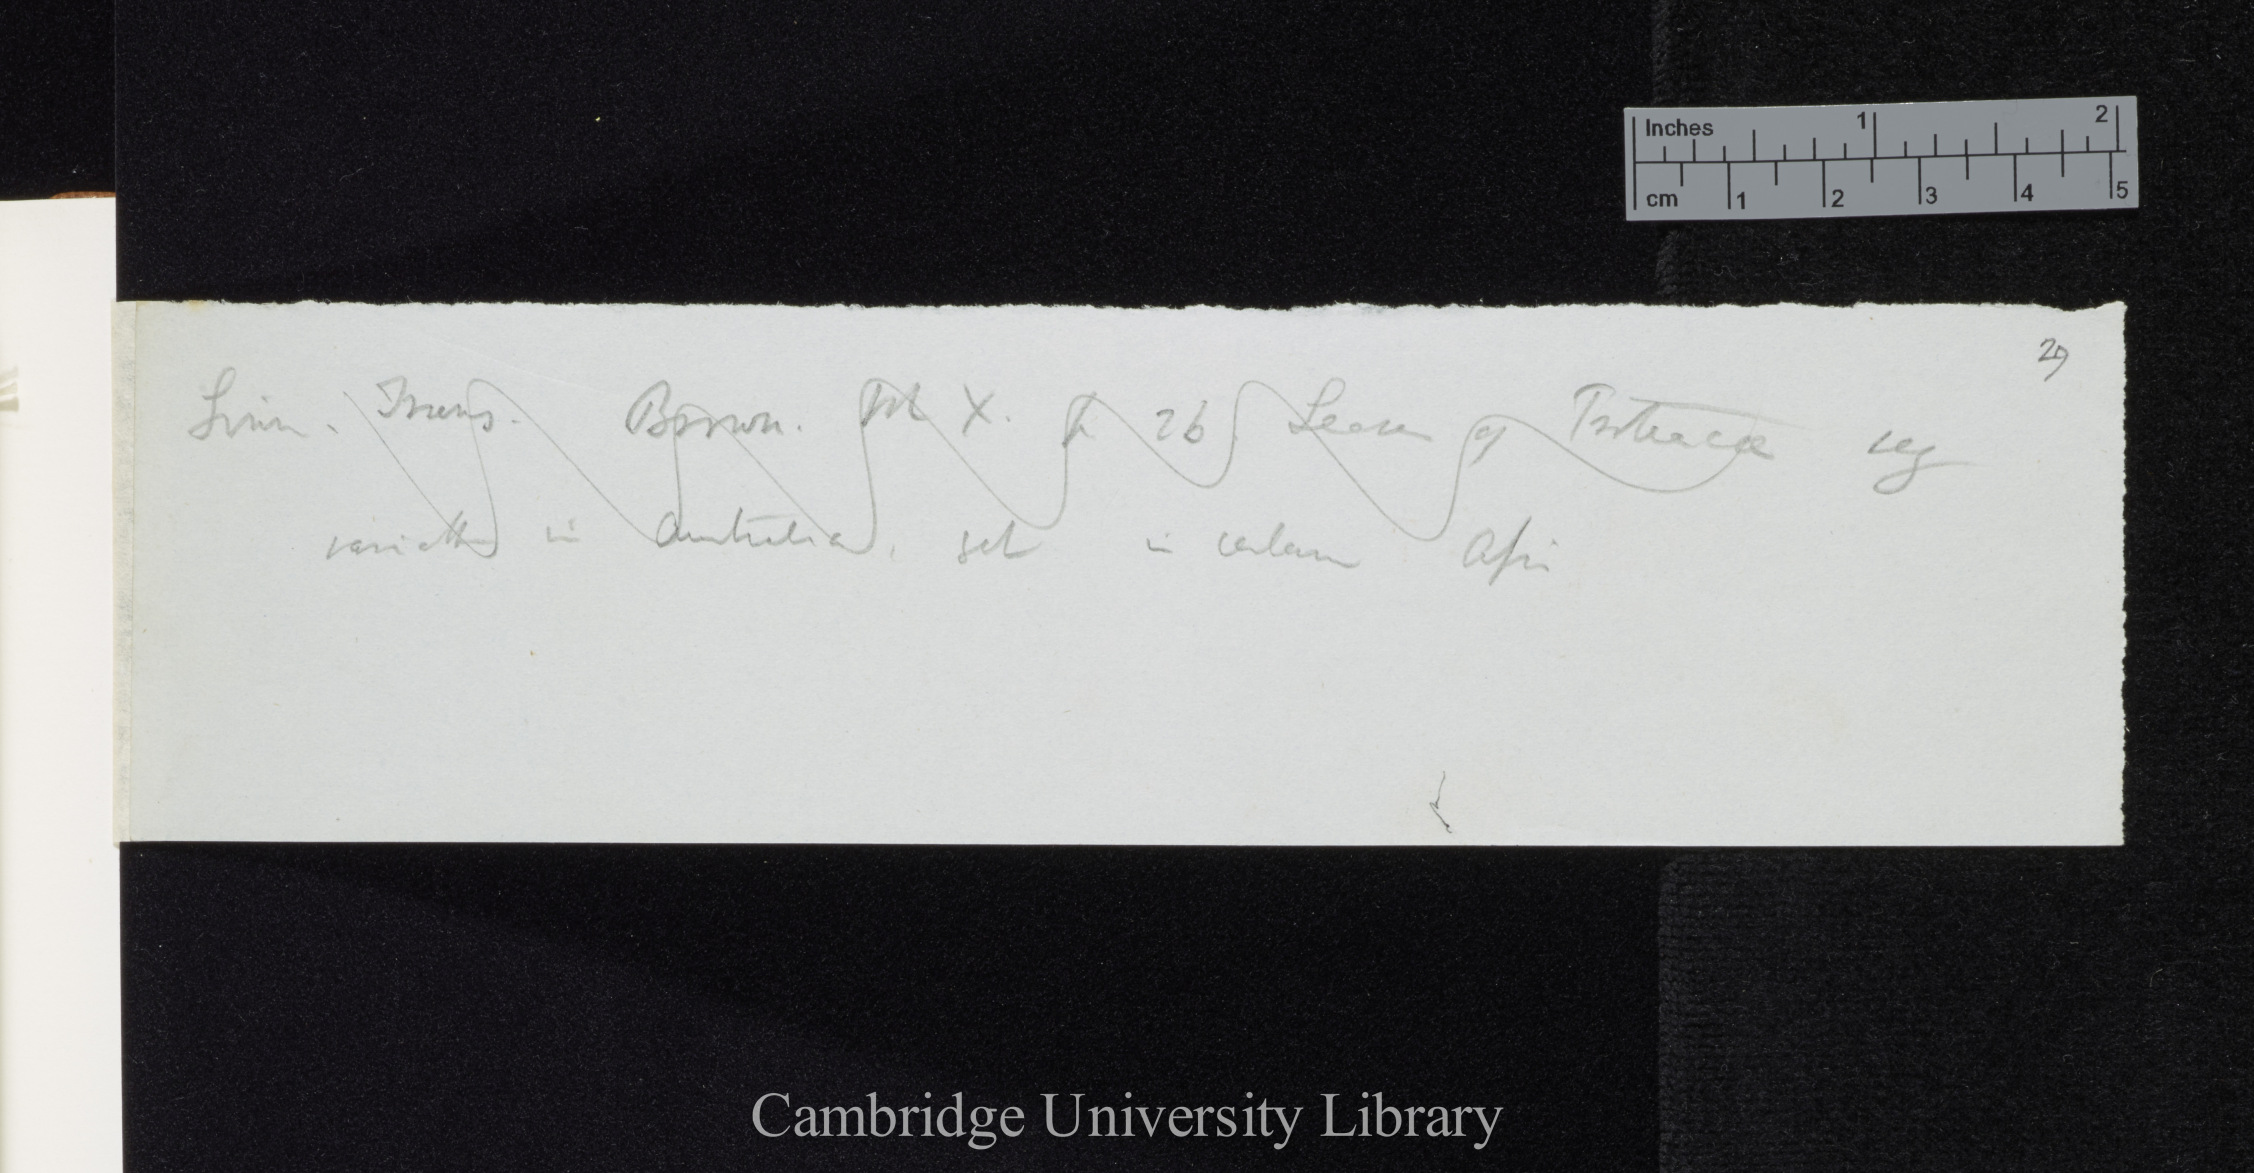 Inches 1 2
cm 1 2 3 4 5
29
Linn. Trans. Brown. Vol X. p 26. Leaves of Proteaceæ very
variable in Australia, not in Africa
Cambridge University Library